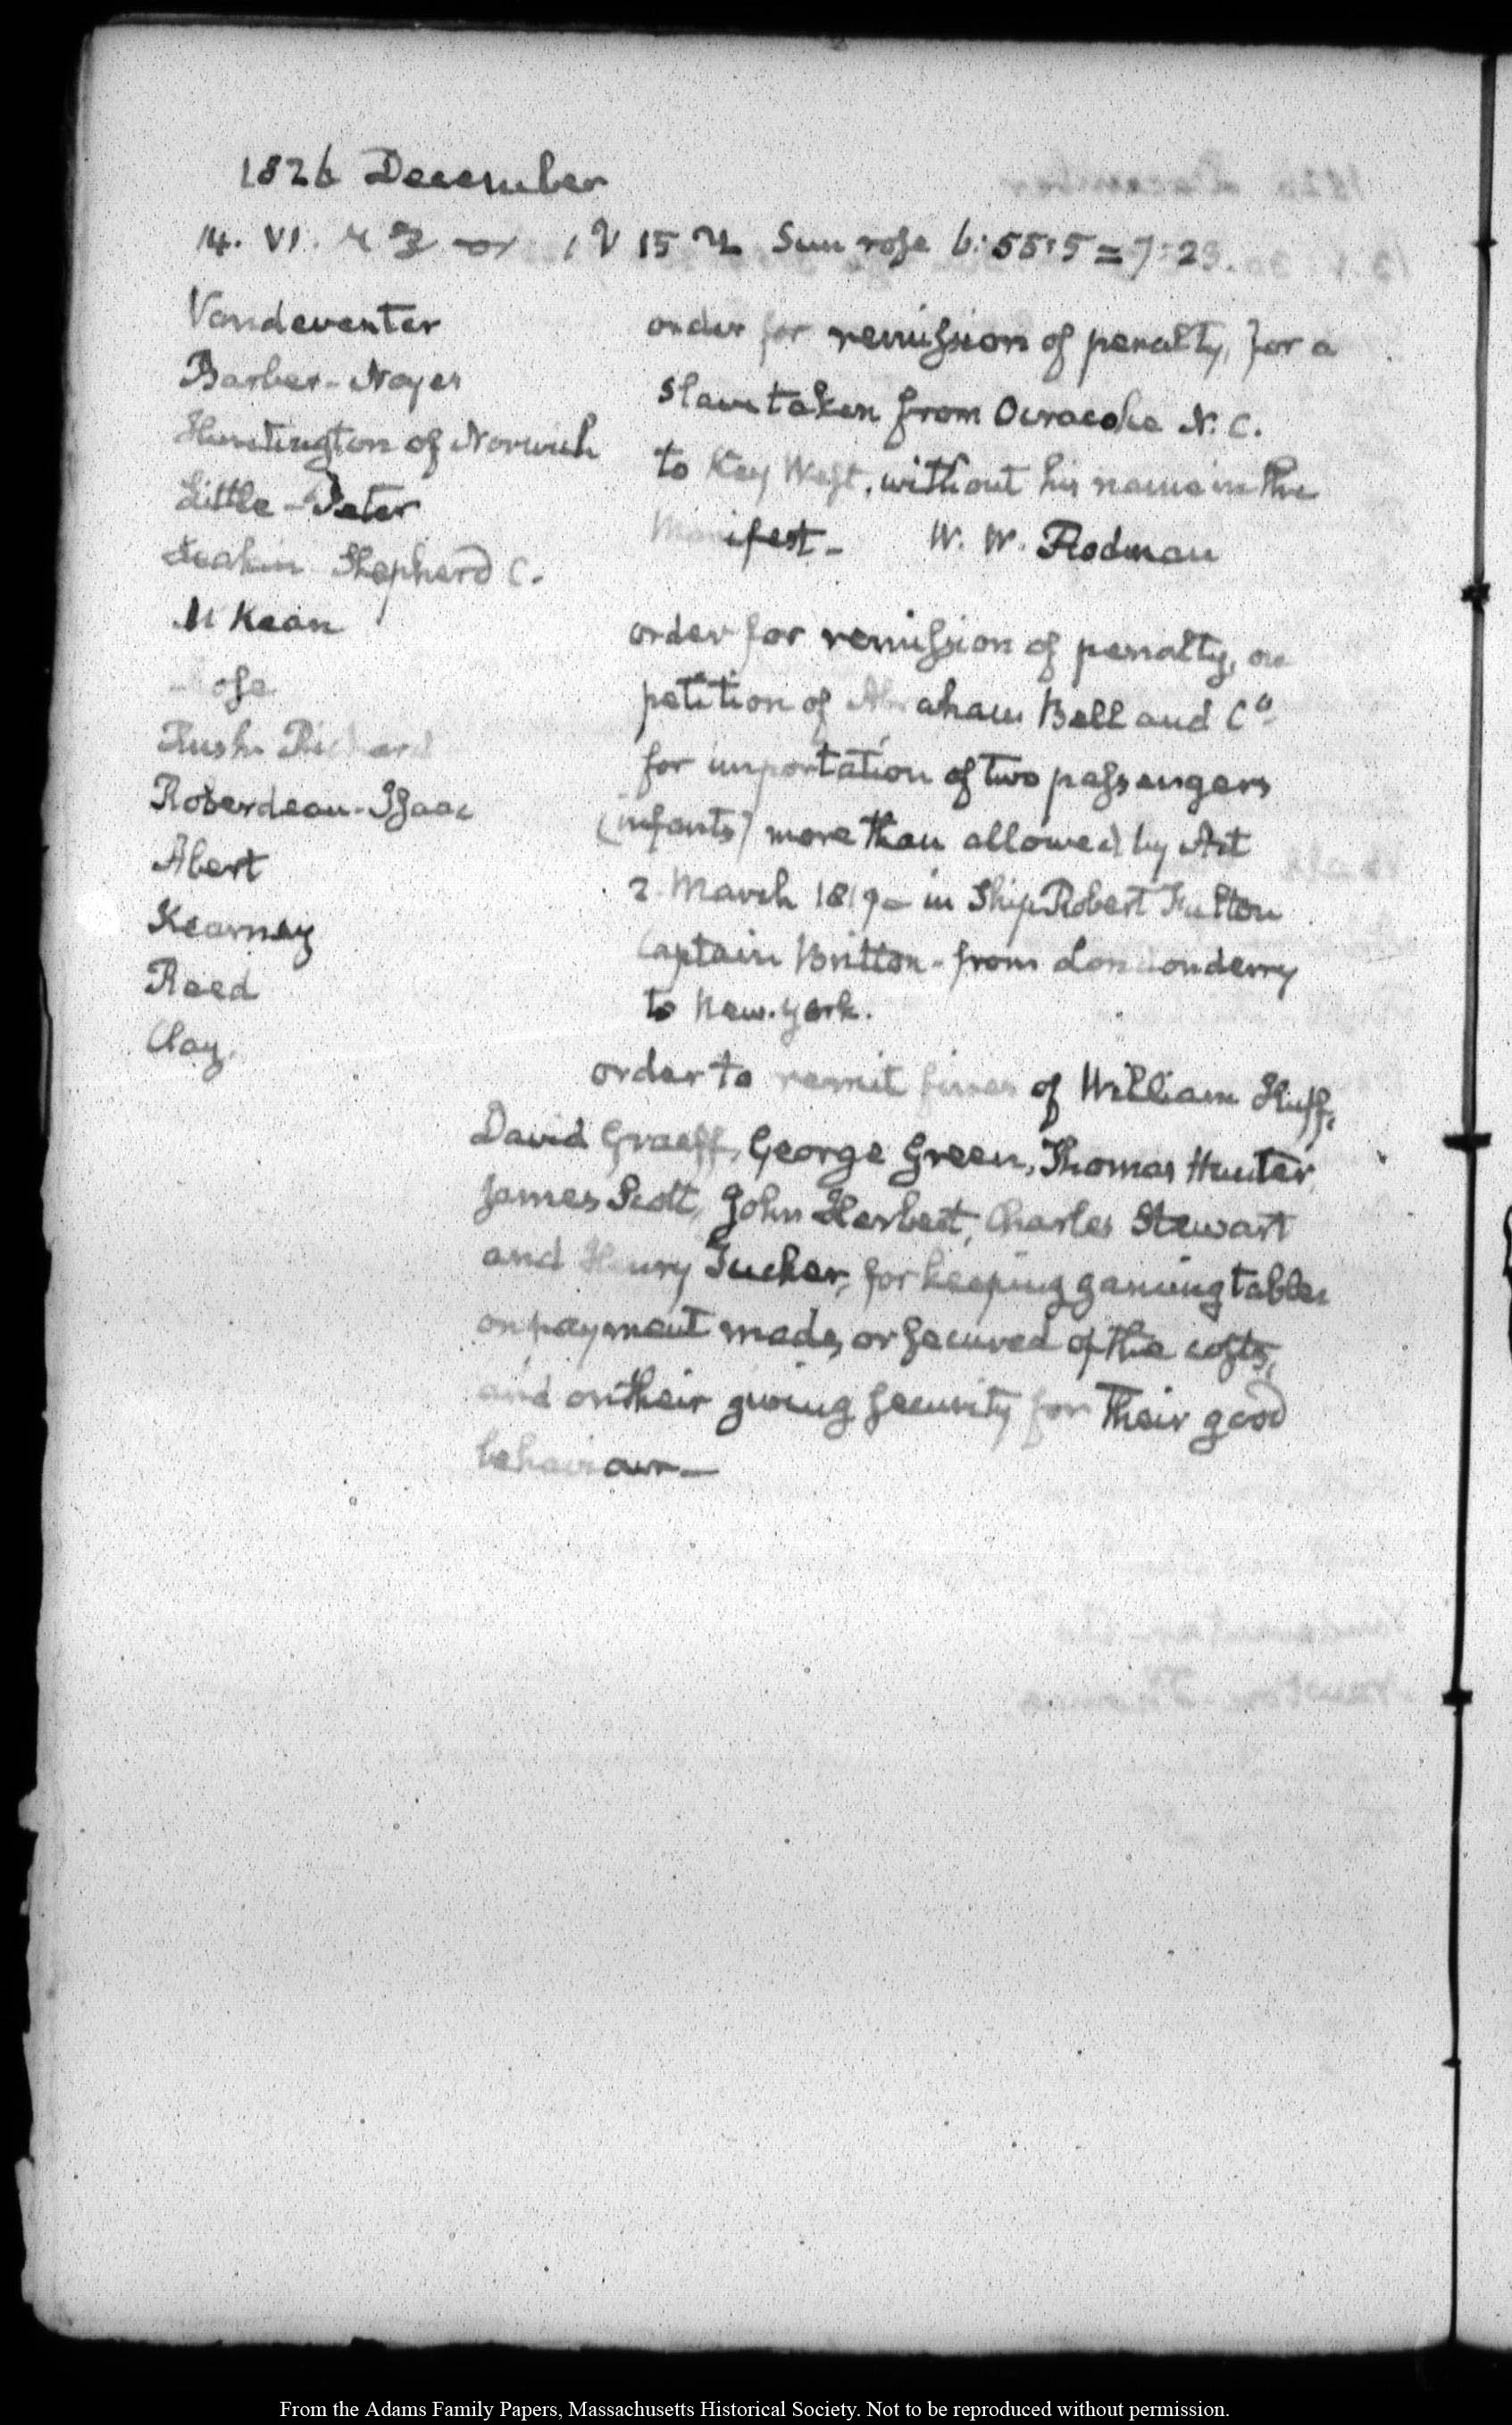 1826 December
14. VI. Sun rose 6:55:5 = 7:23.
Vandeventer
Barber - Noyes
Huntington of Norwich
Little - Peter
Leakin Shepherd C.
McKean
Rush Richard
Roberdeau - Isaac
Abert
Kearney
Reed
Clay.
order for remission of penalty, for a
slave taken from Ocracoke N. C.
to Key West, without his name in the
Manifest - W. W. Rodman
order for remission of penalty, on
petition of Abraham Bell and Co.
for importation of two passengers
(infants) more than allowed by Act
2 March 1819 - in Ship Robert Fulton
Captain Britton - from Londonderry
to New-York.
order to remit fines of William Huff,
David Graeff, George Green, Thomas Hunter,
James Scott, John Herbert, Charles Stewart
and Henry Tucker, for keeping gaming tables
on payment made, or secured of the costs,
and on their giving security for their good
behaviour -
From the Adams Family Papers, Massachusetts Historical Society. Not to be reproduced without permission.